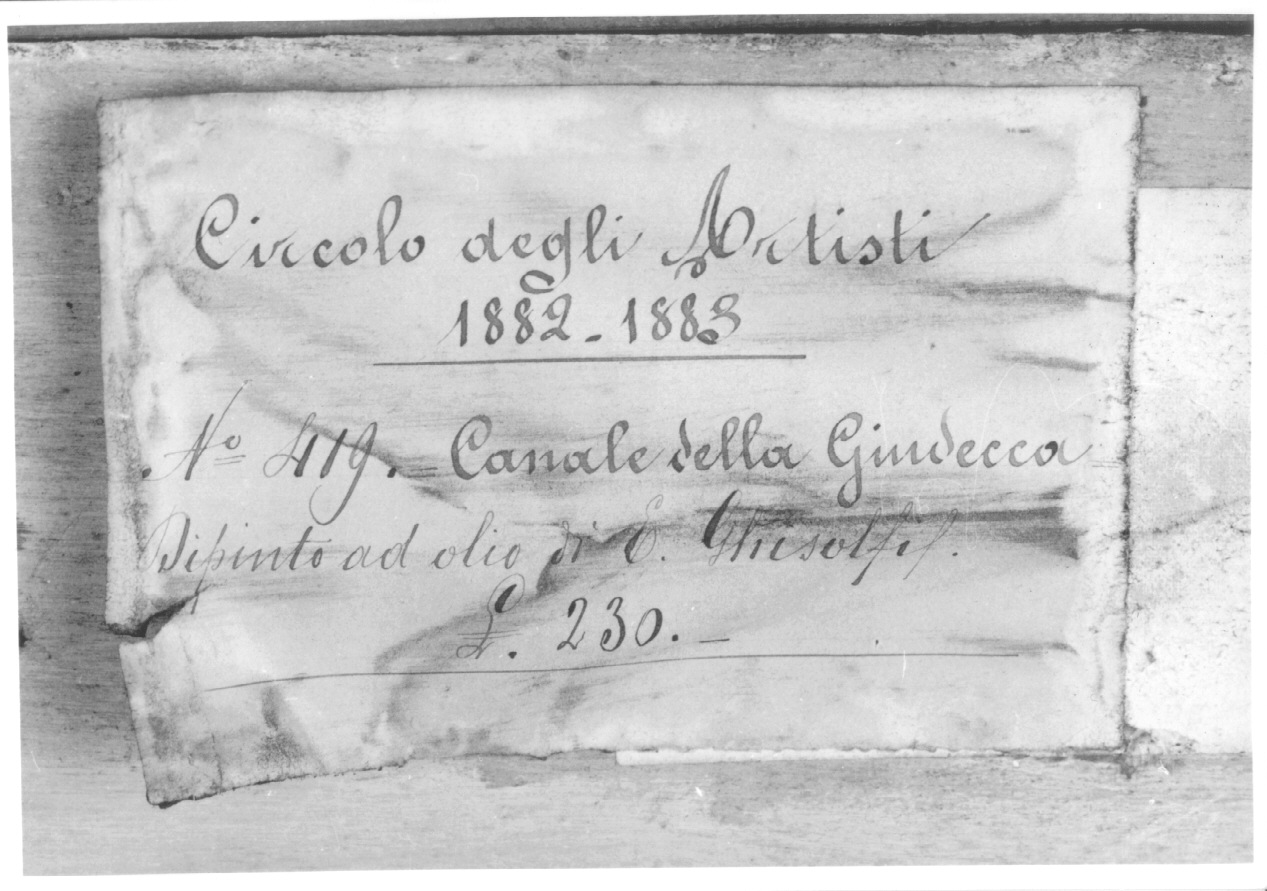 Circolo degli Artisti
1882 - 1883
Nº 419. = Canale della Giudecca =
Dipinto ad olio di E. Ghisolfi.
L. 230. –